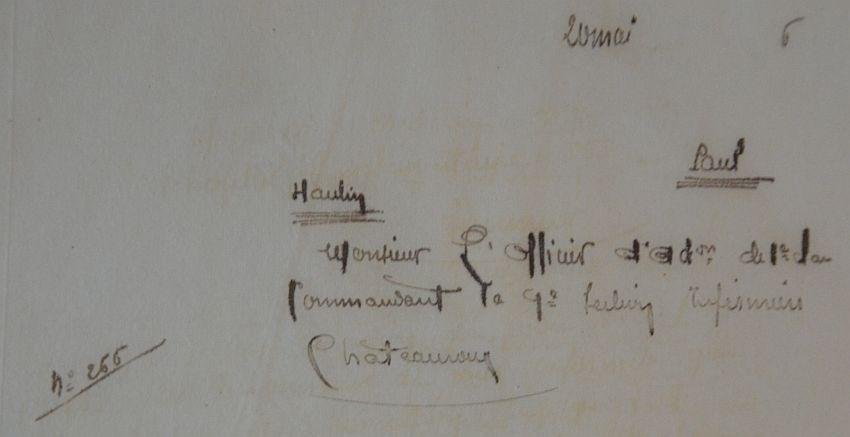 20 mai 6
Paul
Haulin
Monsieur L'Officier d'Adon de 1re Clas
Commandant la 9e Section Infirmiers
Châteauroux
No 266